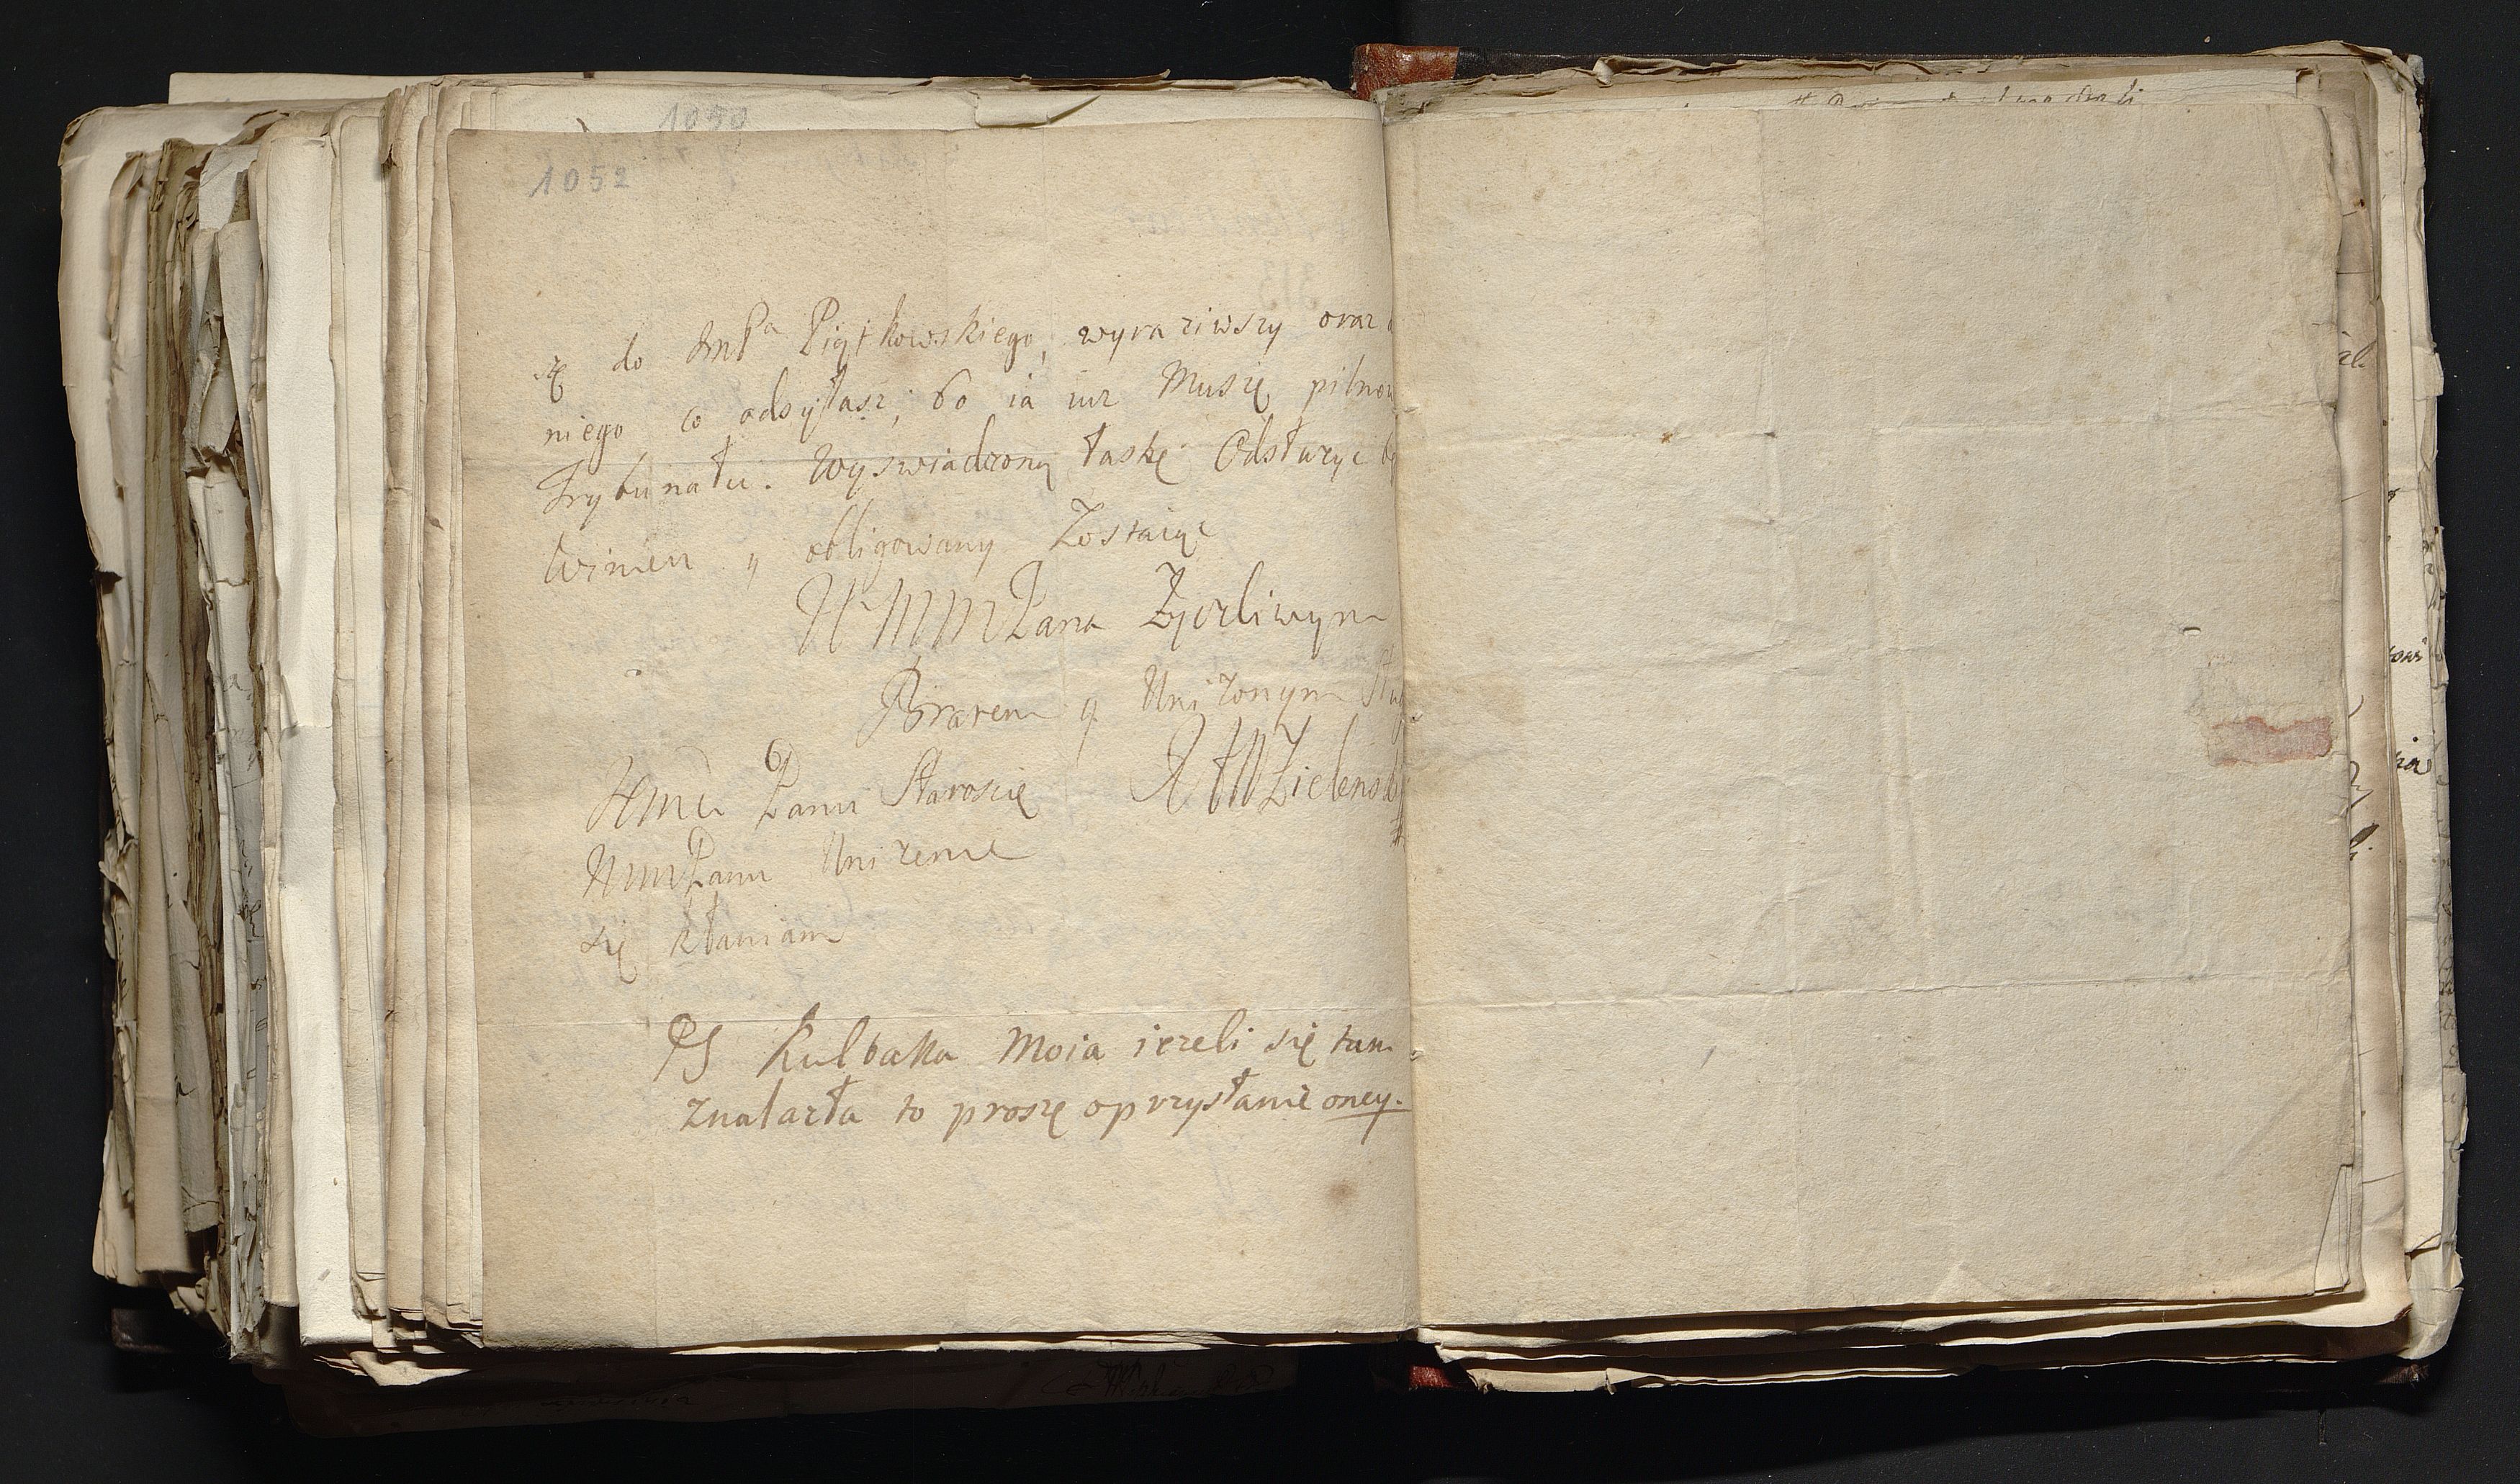 1050
1052
się do JmPa Piątkowskiego, wyraziwszy oraz
niego co odsyłasz, bo ia iuz Muszę
Trybunału. Wyswiadczoną łaskę Odsłuzyc
winien y obligowany Zostaiąc
WMMPana Zyczliwym
Bratem y Unizonym
Panu Staroscie
WMMPanu Unizenie
się kłaniam
PS Kulbaka Moia iezeli się tam
znalazła to proszę o przysłanie oney.